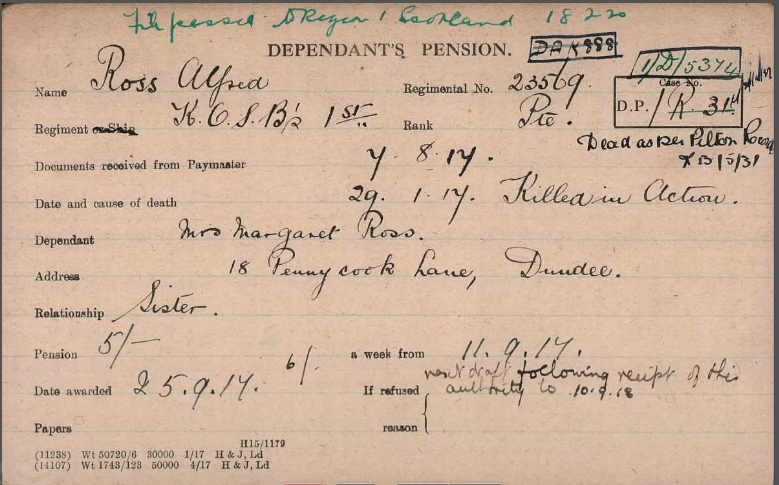 File passed to Region 1 Scotland 18 2 20
DEPENDANT'S PENSION.
DAK 888
1/D/5374
Name Ross Alfred
Regimental No. 23569.
Case No.
D.P./R 314
Regiment or Ship K.O.S.B's 1st
Rank Pte.
Dead as per Pilton Record
13/5/31
Documents received from Paymaster 7. 8. 17.
Date and cause of death 29. 1. 17. Killed in Action.
Dependant Mrs Margaret Ross.
Address 18 Pennycook Lane, Dundee.
Relationship Sister.
Pension 5/- 6/- a week from 11. 9. 17.
next draft following receipt of this
Date awarded 25.9.17. If refused authority to 10.9.18
reason
Papers
H15/1179
(11238) Wt 50720/6 30000 1/17 H & J, Ld
(14107) Wt 1743/123 50000 4/17 H & J, Ld